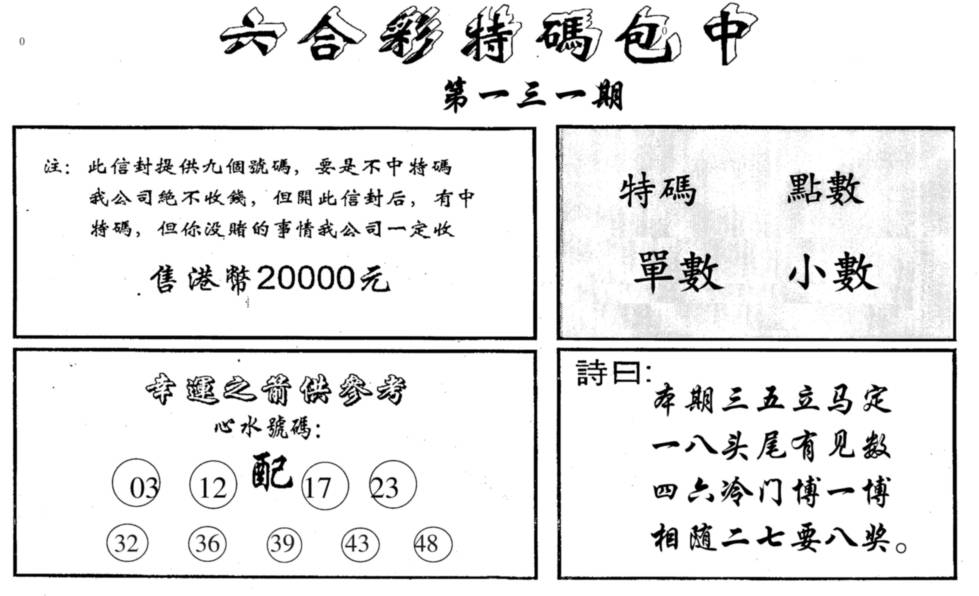 0
六合彩特碼包中
第一三一期
注：此信封提供九個號碼，要是不中特碼
我公司絕不收錢，但開此信封后，有中
特碼，但你没賭的事情我公司一定收
售港幣20000元
特碼 點數
單數 小數
幸運之箭供參考
心水號碼：
配
03 12 17 23
32 36 39 43 48
詩曰:
本期三五立马定
一八头尾有见数
四六冷门博一博
相随二七要八奖。